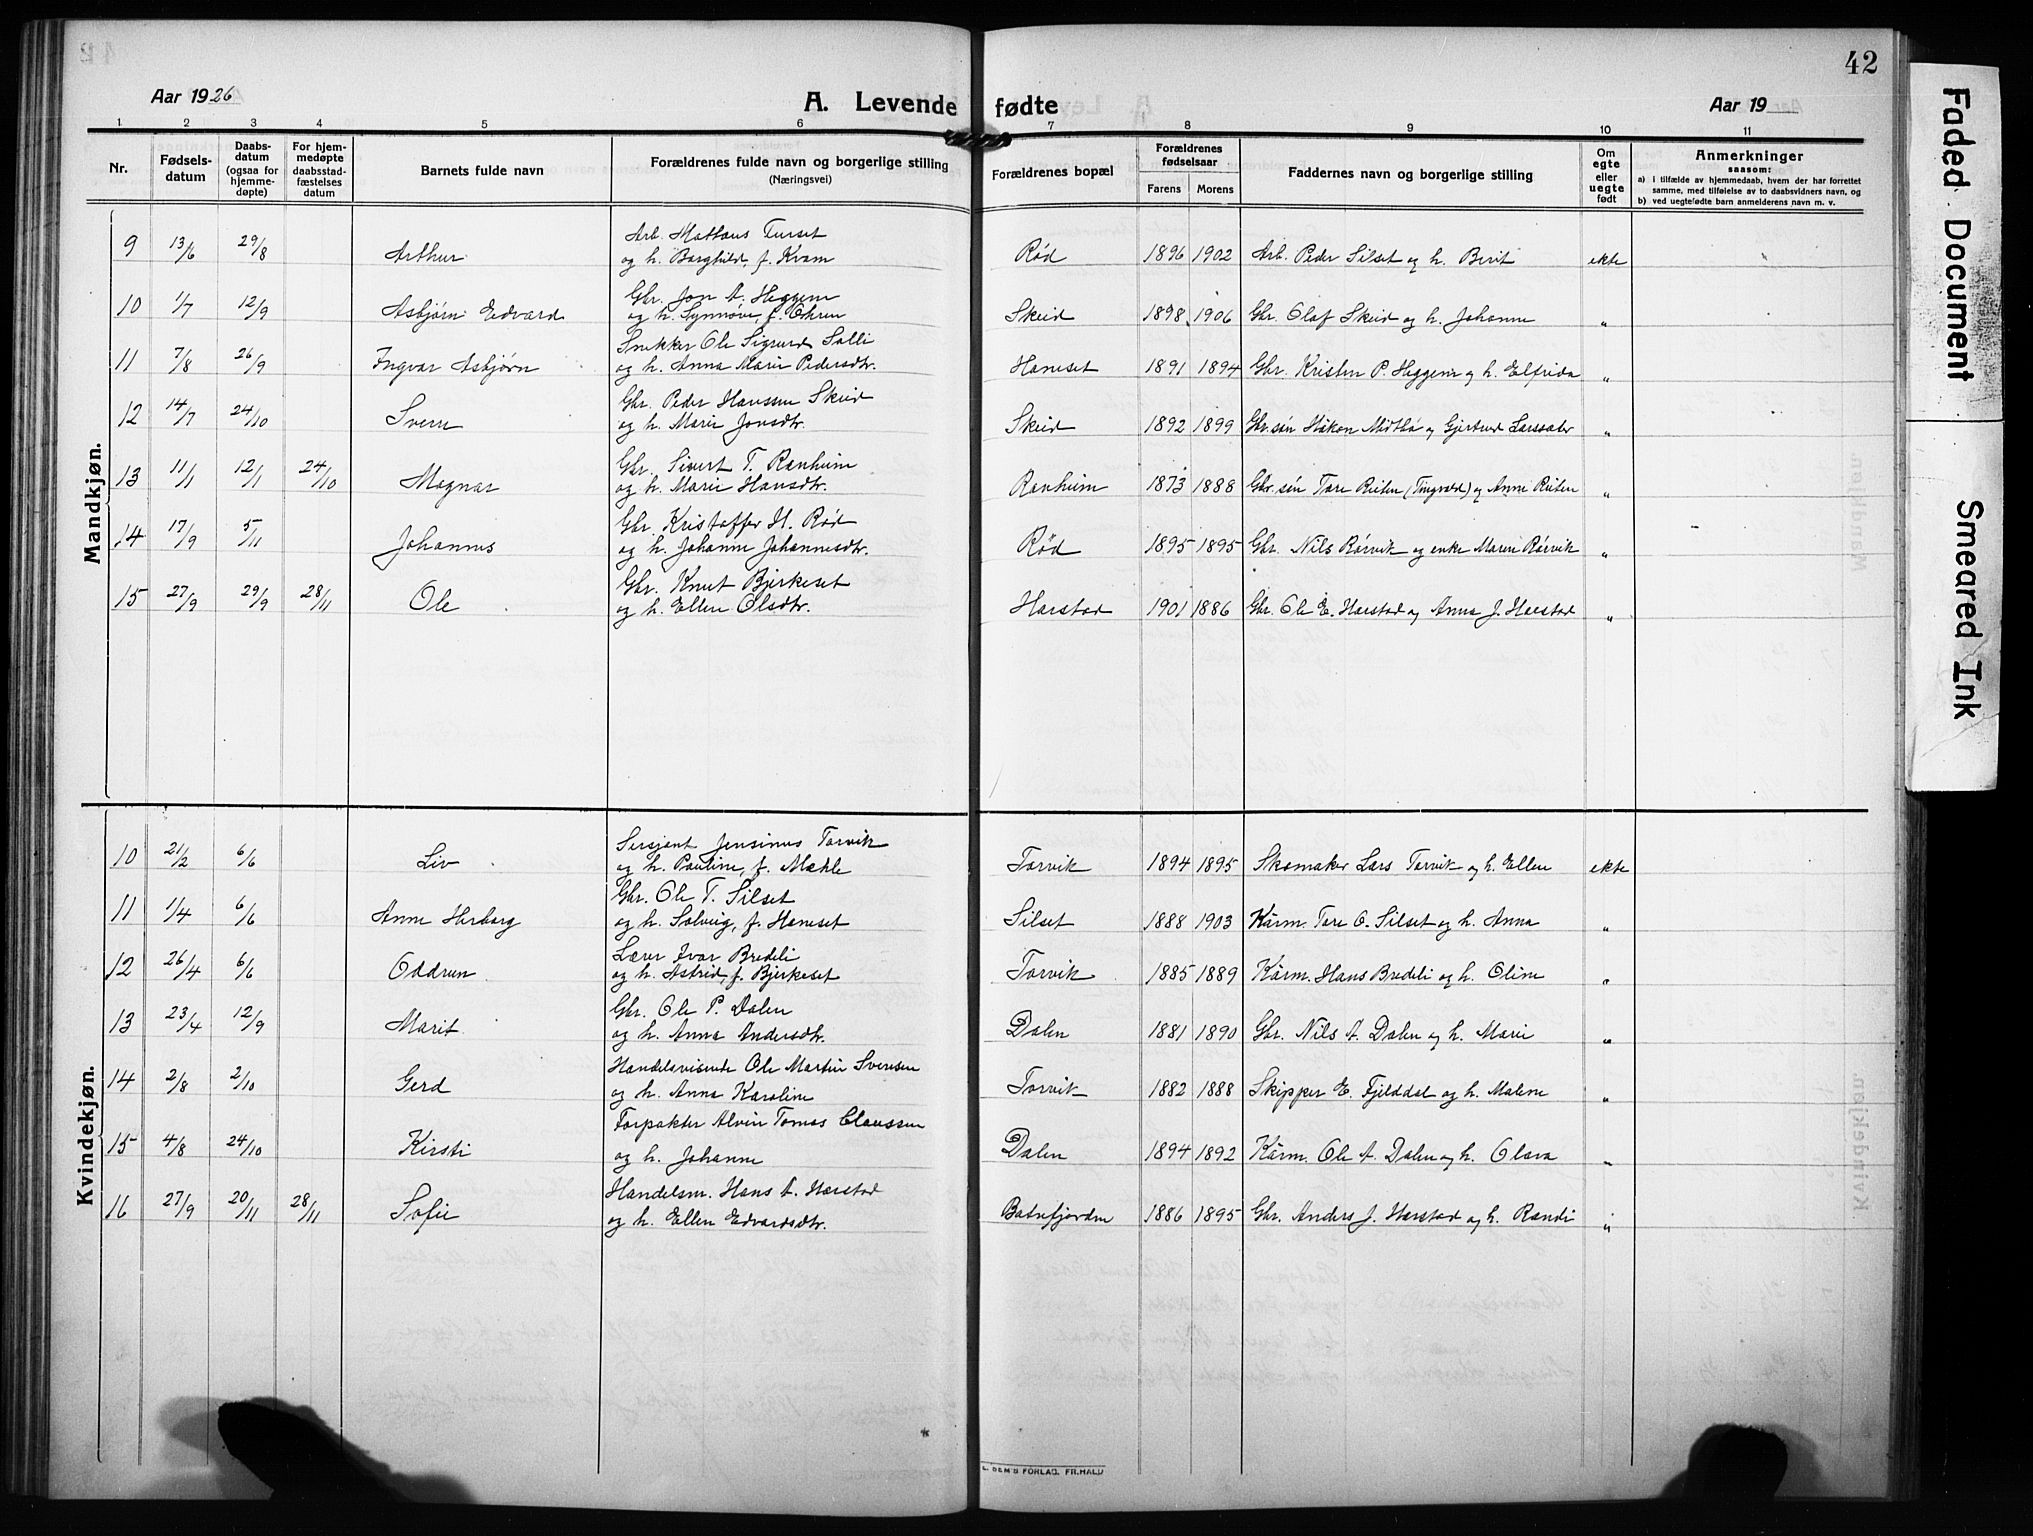 42
Aar 1926
A. Levende fødte
Aar 19
1 2 3 4 5 6 7 8 9 10 11
Nr.
Fødsels-
datum
Daabs-
datum
(ogsaa for
hjemme-
døpte)
For hjem-
medøpte
daabsstad-
fæstelses
datum
Barnets fulde navn
Forældrenes fulde navn og borgerlige stilling
(Næringsvei)
Forældrenes bopæl
Forældrenes
fødselsaar
Farens Morens
Faddernes navn og borgerlige stilling
Om
egte
eller
uegte
født
Anmerkninger
saasom:
a) i tilfælde av hjemmedaab, hvem der har forrettet
samme, med tilføielse av to daabsvidners navn, og
b) ved uegtefødte barn anmelderens navn m. v.
Mandkjøn.
Arb. Mattæus Furset
9 13/6 29/8 Arthur og h. Borghild, f. Kvam Rød 1896 1902 Arb. Peder Silset og h. Berit ekte
Gbr. Jon A. Heggem
10 1/7 12/9 Asbjørn Edvard og h. Synnøve f. Ohren Skeid 1898 1906 Gbr. Olaf Skeid og h. Johanne "
Snekker Ole Sigurd Solli
11 7/8 26/9 Ingvar Asbjørn og h. Anna Marie Pedersdtr. Haneset 1891 1894 Gbr. Kristen P. Heggem og h. Elfrida "
Gbr. Peder Hanssen Skeid
12 14/7 24/10 Svein og h. Marie Jonsdtr. Skeid 1892 1899 Gbr.søn Håkon Midtbø og Gjertrud "
Gbr. Sivert T. Ranheim
13 11/1 12/1 24/10 Magnar og h. Marie Hansdtr. Ranheim 1873 1888 Gbr. søn Tore Reiten (Tingvold) og Anne Reiten "
Gbr. Kristoffer H. Rød
14 17/9 5/11 Johannes og h. Johanne Johannesdtr. Rød 1895 1895 Gbr. Nils Rørvik og enke Maren Rørvik "
Gbr. Knut Bjerkeset
15 27/9 29/9 28/11 Ole og h. Ellen Olsdtr. Harstad 1901 1886 Gbr. Ole E. Harstad og Anna J. Harstad "
Kvindekjøn.
Sersjant Jensinus Torvik
10 21/2 6/6 Liv og h. Pauline, f. Mæhle Torvik 1894 1895 Skomaker Lars Torvik og h. Ellen ekte
Gbr. Ole T. Silset
11 1/4 6/6 Anne Herborg og h. Solveig, f. Haneset Silset 1888 1903 Kårm. Tore O. Silset og h. Anna "
Lærer Ivar Bredeli
12 26/4 6/6 Oddrun og h. Astrid, f. Bjerkeset Torvik 1885 1889 Kårm. Hans Bredeli og h. Oline "
Gbr. Ole P. Dalen
13 23/4 12/9 Marit og h. Anna Andersdtr. Dalen 1881 1890 Gbr. Nils A. Dalen og h. Marie "
Handelsreisende Ole Martin Svensen
14 2/8 2/10 Gerd og h. Anna Karoline Torvik 1882 1888 Skipper E. Fjelddal og h. Malene "
Forpakter Alvin Tomas Claussen
15 4/8 24/10 Kirsti og h. Johanne Dalen 1894 1892 Kårm. Ole A. Dalen og h. Olava "
Handelsm. Hans A. Harstad
16 27/9 20/11 28/11 Sofie og h. Ellen Edvardsdtr. Batnfjorden 1886 1895 Gbr. Anders J. Harstad og h. Randi "
*
DEM'S FORLAG. FR.HALD
Faded Document
Smeared Ink